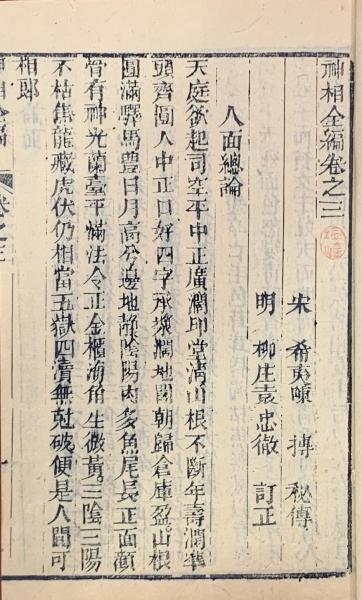 神相全編卷之三
宋 希夷陳 摶 秘傳
明 柳庄袁忠徹 訂正
人面總論
天庭欲起司空平中正廣濶印堂淸山根不斷年壽濶準
頭齊圓人中正口好四字承漿濶地閣朝歸倉庫盈山根
圓滿驛馬豊日月高兮邊地靜陰陽肉多魚尾長正面顴
骨有神光蘭臺平滿法令正金櫃海角生微黃三陰三陽
不枯焦龍藏虎伏仍相當五嶽四瀆無尅破便是人間可
相郎
神相全編 卷之三